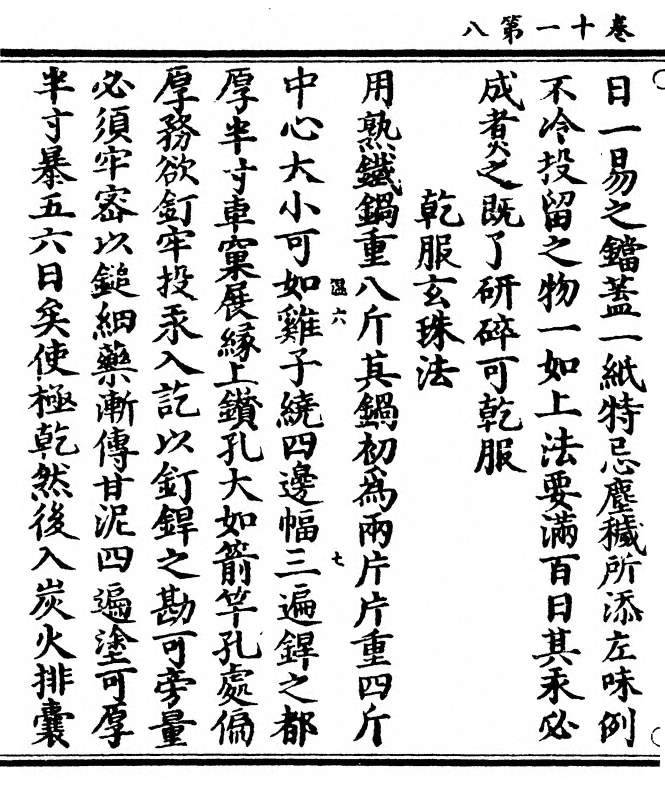 卷十一第八
日一易之鐺蓋一紙特忌塵穢所添左味例
不冷投留之物一如上法要滿百日其汞必
成煑之既了研碎可乾服
乾服玄珠法
用熟鐵鍋重八斤其鍋初為兩片片重四斤
中心大小可如雞子繞四邊幅三遍銲之都
溫六
七
厚半寸車窠展緣上鑚孔大如箭竿孔處偏
厚務欲釘牢投汞入訖以釘銲之勘可旁量
必須牢密以鎚細藥漸傅甘泥四遍塗可厚
半寸暴五六日矣使極乾然後入炭火排囊